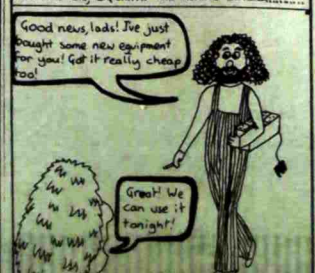 Good news, lads! I've just
bought some new equipment
for you! Got it really cheap
too!
Great! We
can use it
tonight!